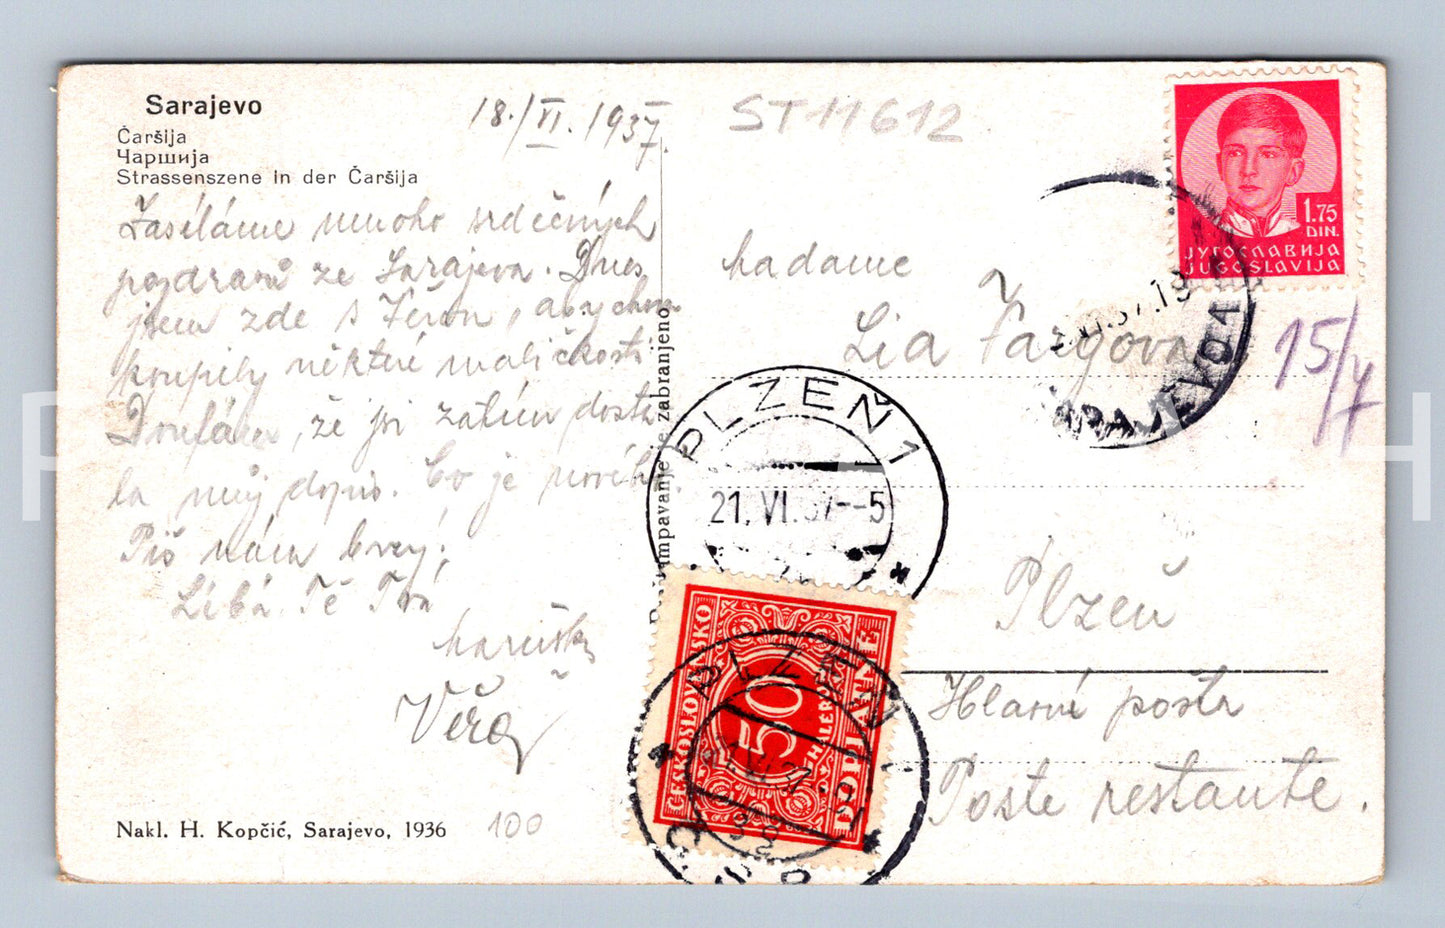 Sarajevo
Čaršija
Чаршија
Strassenszene in der Čaršija
18./VI. 1937.
ST11612
Zasíláme mnoho srdečných
pozdravů ze Sarajeva. Dnes
jsem zde s Věrou, abychom
koupily některé maličkosti
Doufám, že jsi zatím dosta-
la můj dopis. Co je nového.
Piš nám brzy!
Líbá Tě Tvá
Maruška
Věra
Nakl. H. Kopčić, Sarajevo, 1936
100
zabranjeno
Madame
Lia
Plzeň
Hlavní pošta
Poste restante.
1.75
DIN.
ЈУГОСЛАВИЈА
JUGOSLAVIJA
15/
PLZEŇ 1
21. VI. 37--5
ČESKOSLOVENSKO
50
HALÉŘŮ
DOPLATNÉ
PLZEŇ